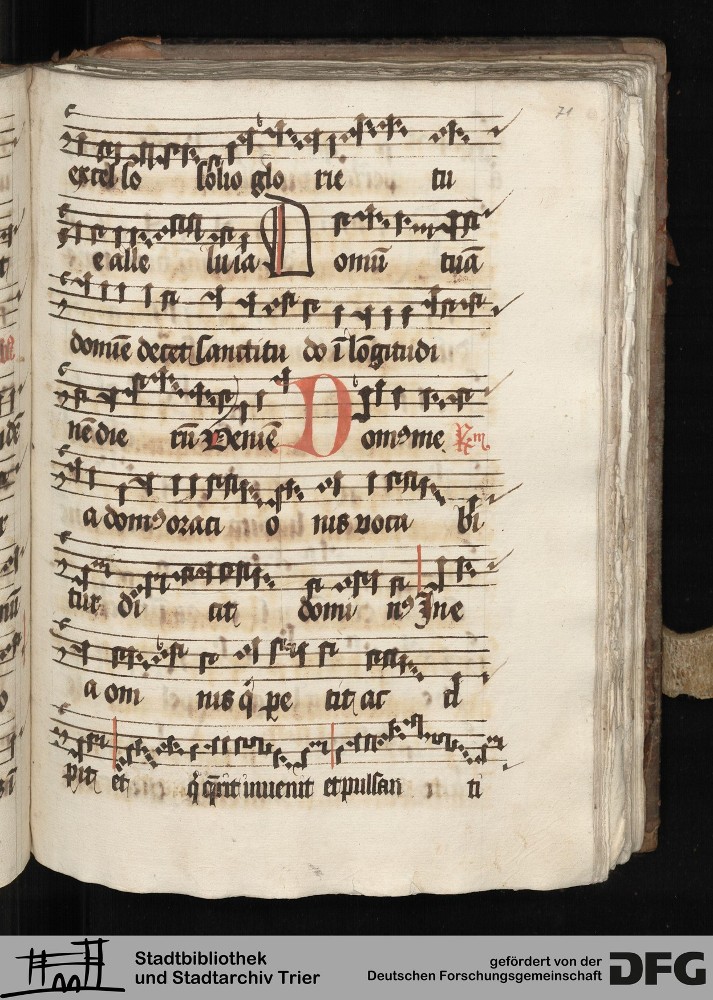 71
excel so solio glo rie tu
e alle luia Domū tuā
domūe decet sanctitu do ī lōgitudi
nē die rū Veniē Domꝰ me Rm.
a domꝰ orati o nis voca bi
tur di cit domi nꝰ In e
a om nis q̄ pe tit ac ci
pit et q̄ q̄rit inuenit et pulsan ti
Stadtbibliothek
und Stadtarchiv Trier
gefördert von der
Deutschen Forschungsgemeinschaft
DFG